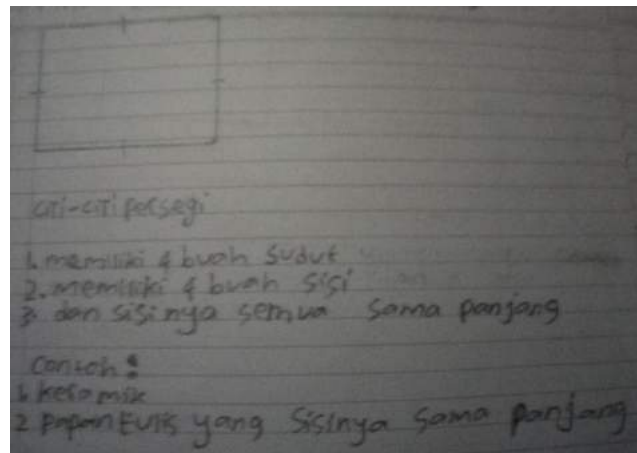 ciri-ciri persegi
1. memiliki 4 buah sudut
2. memiliki 4 buah sisi
3. dan sisinya semua sama panjang
Contoh :
1. keramik
2 papan tulis yang sisinya sama panjang